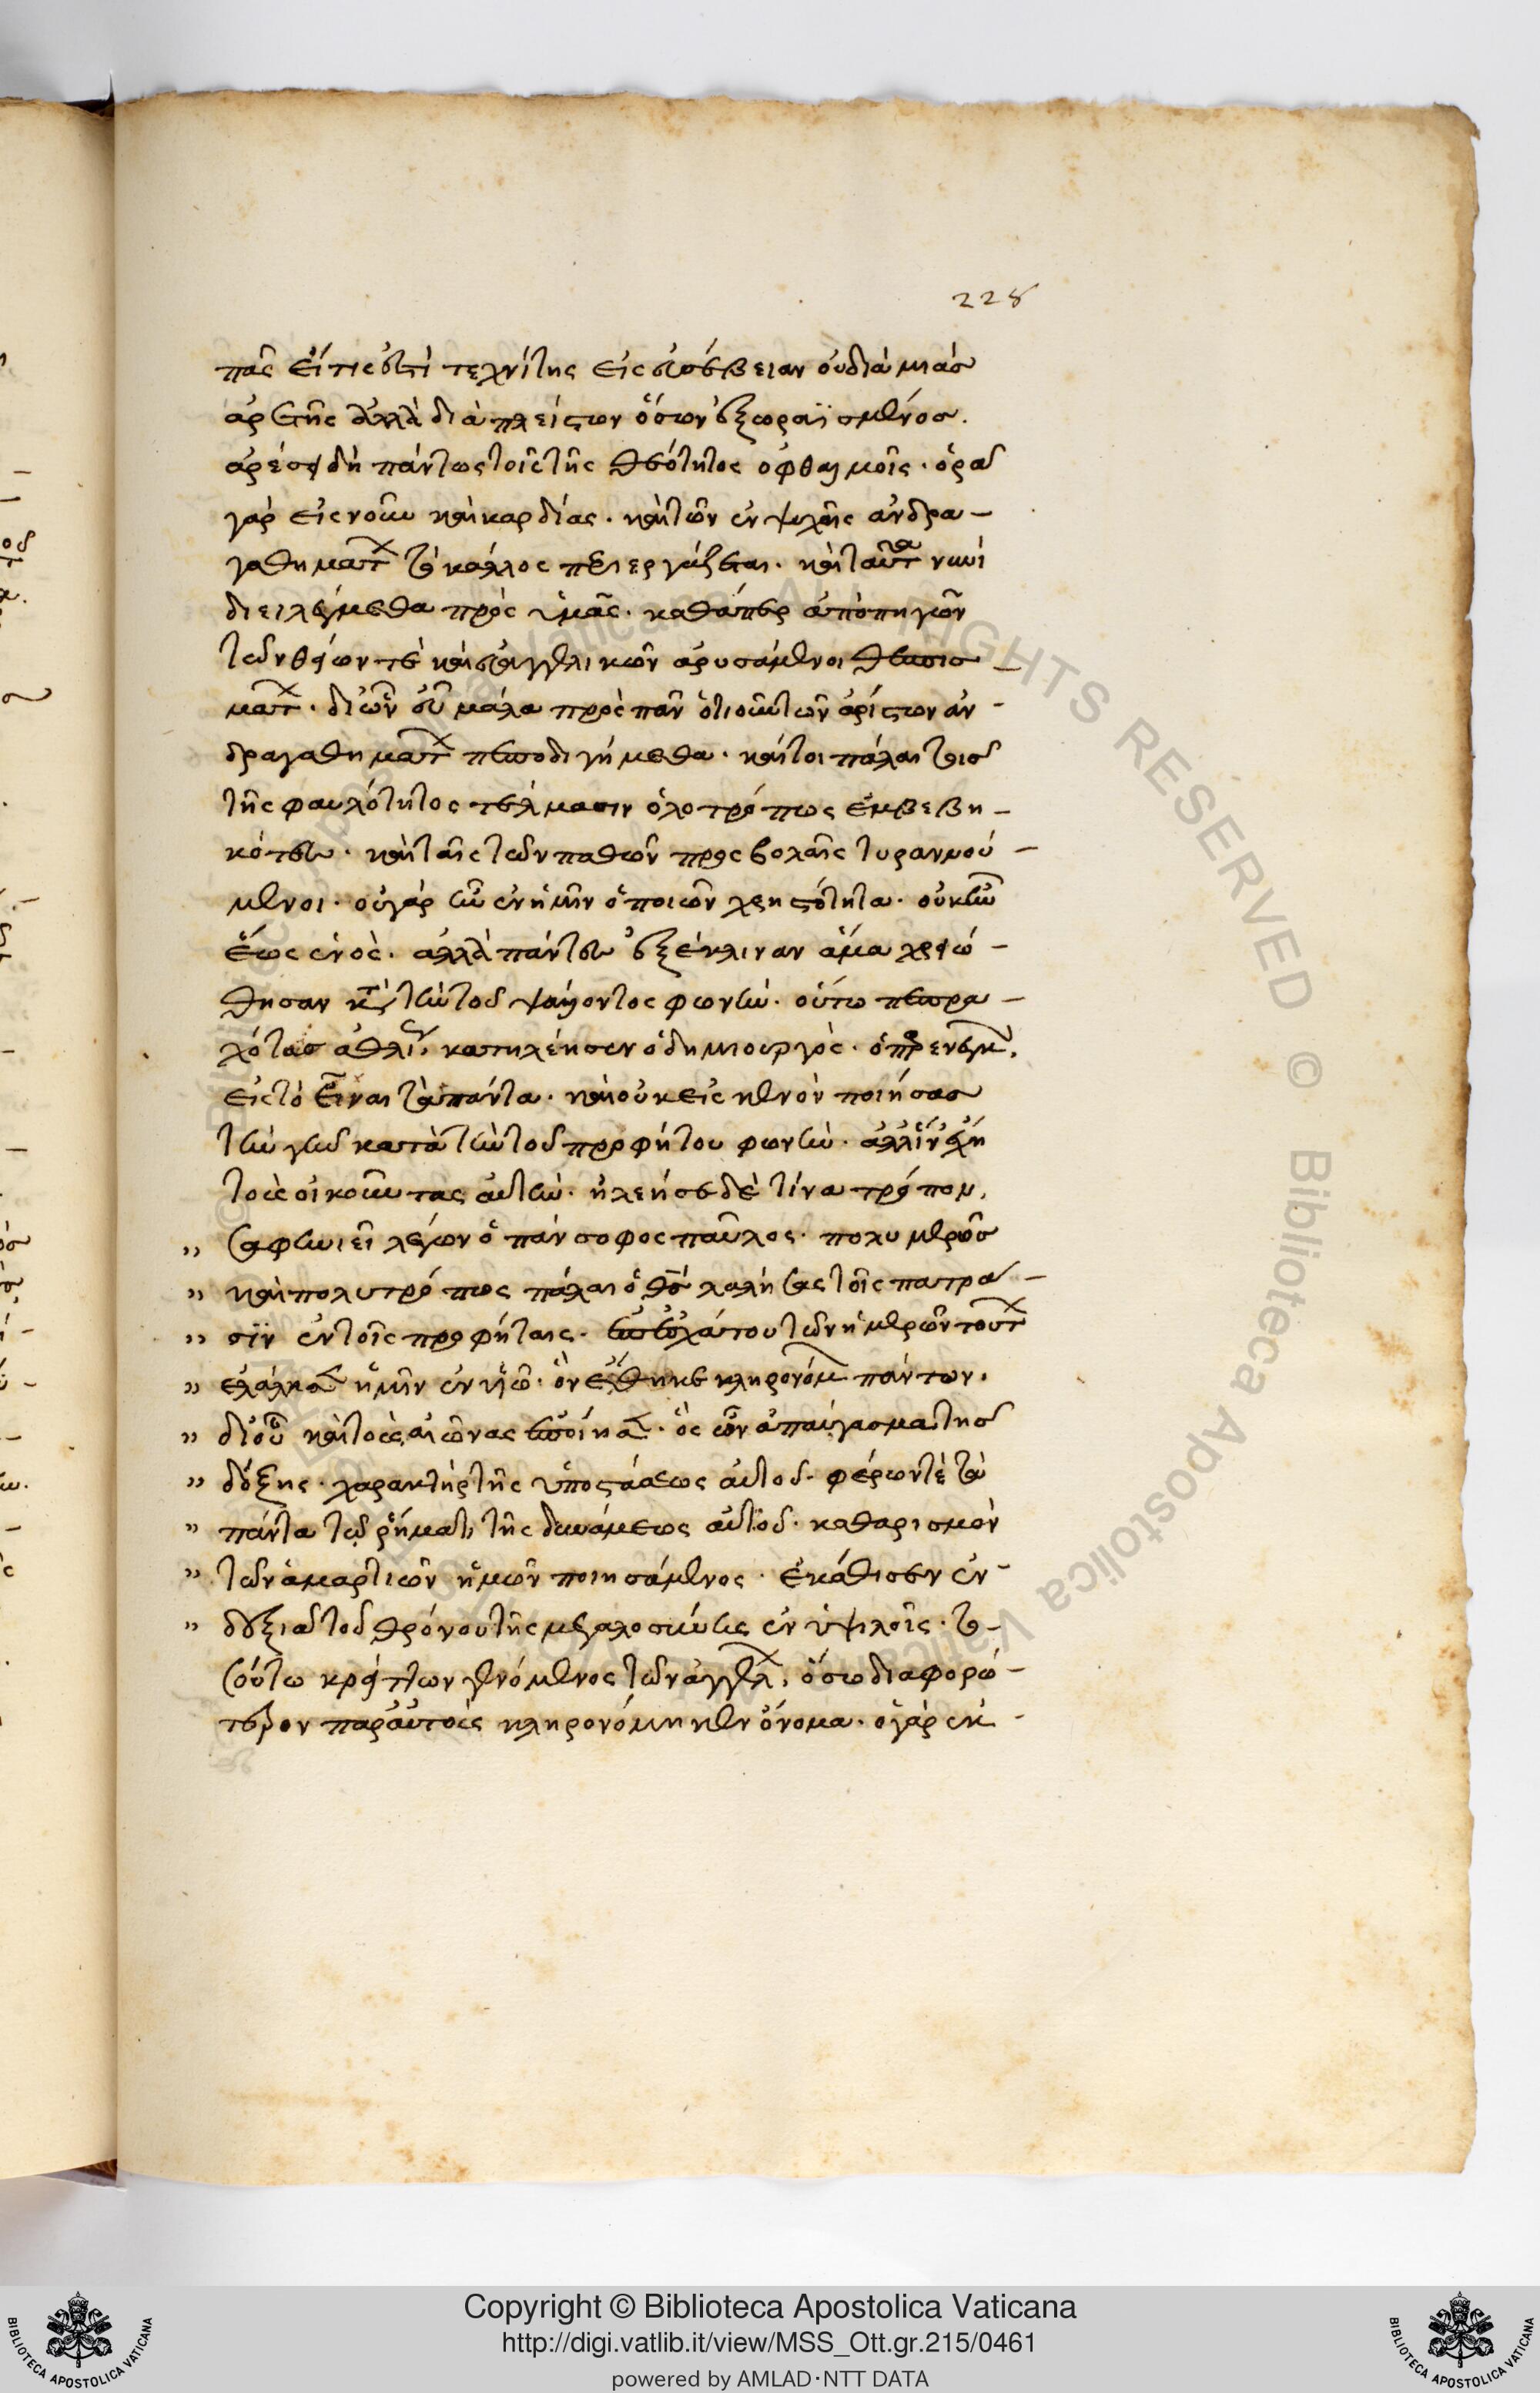 228
πᾶς εἴ τις ἐστὶ τεχνίτης εἰς εὐσέβειαν οὐ διὰ μιᾶς
ἀρετῆς ἀλλὰ διὰ πλείστων ὅσων ἐξωραϊσμένος.
ἀρέσει δὴ πάντως τοῖς τῆς θεότητος ὀφθαλμοῖς. ὁρᾶ
γὰρ εἰς νοῦν καὶ καρδίας. καὶ τῶν ἐν ψυχαῖς ἀνδρα-
γαθημάτ τὸ κάλλος περιεργάζεται. καὶ ταῦτα νυνὶ
διειλέγμεθα πρὸς ὑμᾶς. καθάπερ ἀπὸ πηγῶν
τῶν θείων τε καὶ εὐαγγελικῶν ἀρυσάμενοι θεσπισ-
μάτ. δι' ὧν εὖ μάλα πρὸς πᾶν ὁτιοῦν τῶν ἀρίστων ἀν-
δραγαθημάτ πεποδιγήμεθα. καί τοι πάλαι τοῖς
τῆς φαυλότητος τέλμασιν ὁλοτρόπως ἐμβεβη-
κότες. καὶ ταῖς τῶν παθῶν προσβολαῖς τυραννού-
μενοι. οὐ γὰρ ἦν ἐν ἡμῖν ὁ ποιῶν χρηστότητα. οὐκ ἦν
ἕως ἑνός. ἀλλὰ πάντες ἐξέκλιναν ἅμα ἠχρειώ-
θησαν κατὰ τὴν τοῦ ψάλλοντος φωνήν. οὕτω πεπρα-
χότας ἀθλί. κατηλέησεν ὁ δημιουργός. ὁ παρενεγκ.
εἰς τὸ εἶναι τὰ πάντα. καὶ οὐκ εἰς κενὸν ποιήσας
τὴν γῆν κατὰ τὴν τοῦ προφήτου φωνήν. ἀλλ' ἵν' ἔχῃ
τοὺς οἰκοῦντας αὐτήν. ἠλέησε δὲ τίνα τρόπον.
„ σαφηνιεῖ λέγων ὁ πάνσοφος παῦλος. πολυμερῶς
„ καὶ πολυτρόπως πάλαι ὁ θς λαλήσας τοῖς πατρά-
„ σϊν ἐν τοῖς προφήταις. ἐπ' ἐσχάτου τῶν ἡμερῶν τούτ
„ ἐλάλησεν ἡμῖν ἐν υἱῷ. ὃν ἔθηκε κληρονόμ πάντων.
„ δι' οὗ καὶ τοὺς αἰῶνας ἐποίησεν. ὃς ὢν ἀπαύγασμα τῆς
„ δόξης. χαρακτὴρ τῆς ὑποστάσεως αὐτοῦ. φέρων τὲ τὰ
„ πάντα τῷ ῥήματι τῆς δυνάμεως αὐτοῦ. καθαρισμὸν
„ τῶν ἁμαρτιῶν ἡμῶν ποιησάμενος. ἐκάθισεν ἐν
„ δεξιᾷ τοῦ θρόνου τῆς μεγαλοσύνης ἐν ὑψηλοῖς. το-
σούτω κρείττων γενόμενος τῶν ἀγγέλ. ὅσω διαφορώ-
τερον παρ' αὐτοὺς κληρονόμηκεν ὄνομα. ὁ γὰρ ἐκ
Copyright © Biblioteca Apostolica Vaticana
http://digi.vatlib.it/view/MSS_Ott.gr.215/0461
powered by AMLAD·NTT DATA
BIBLIOTECA APOSTOLICA VATICANA
BIBLIOTECA APOSTOLICA VATICANA